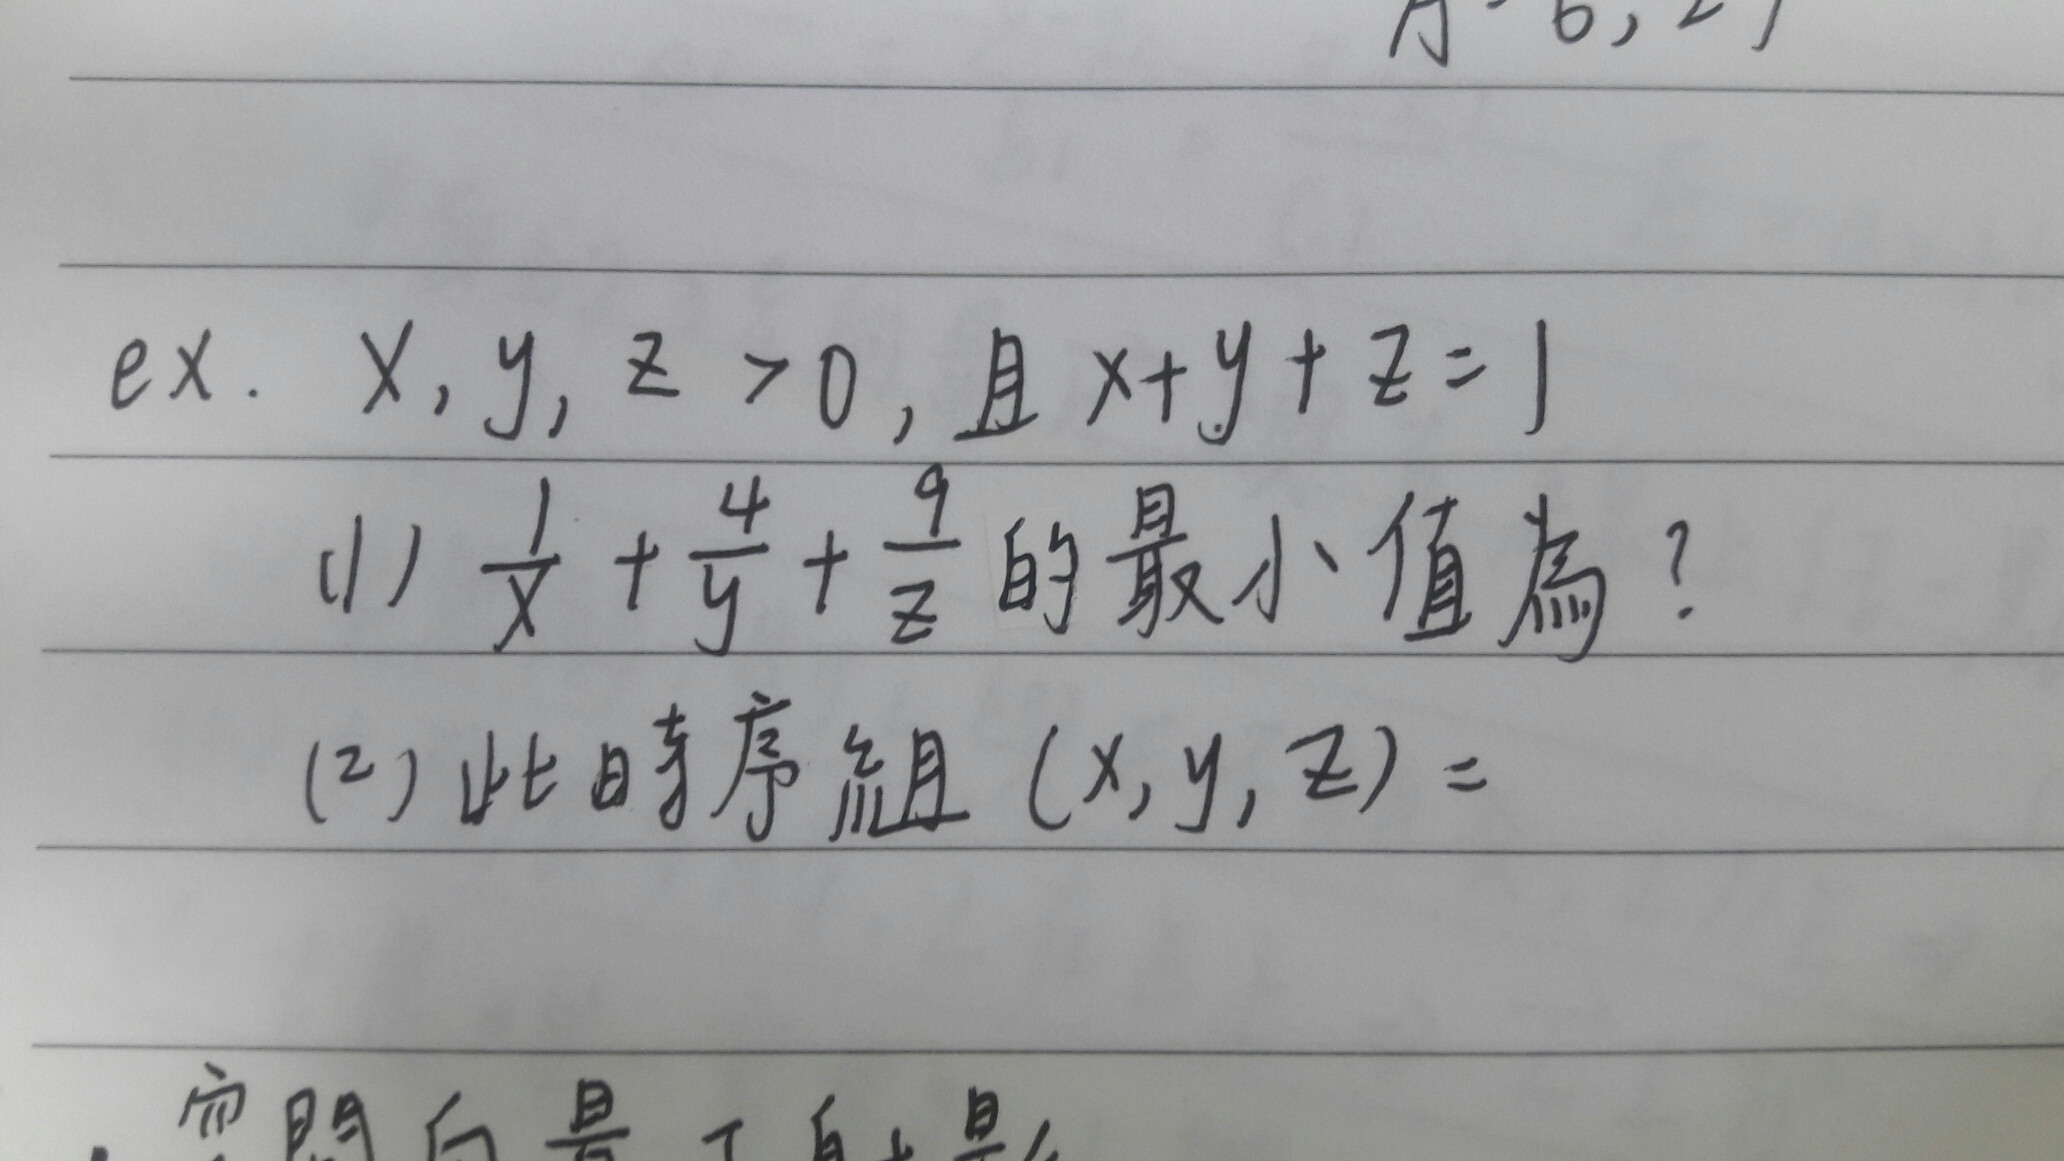 ex. x, y, z > 0, 且 x+y+z=1
(1) 1/x + 4/y + 9/z 的最小值為?
(2) 此時序組 (x, y, z) =
空間向量正射影